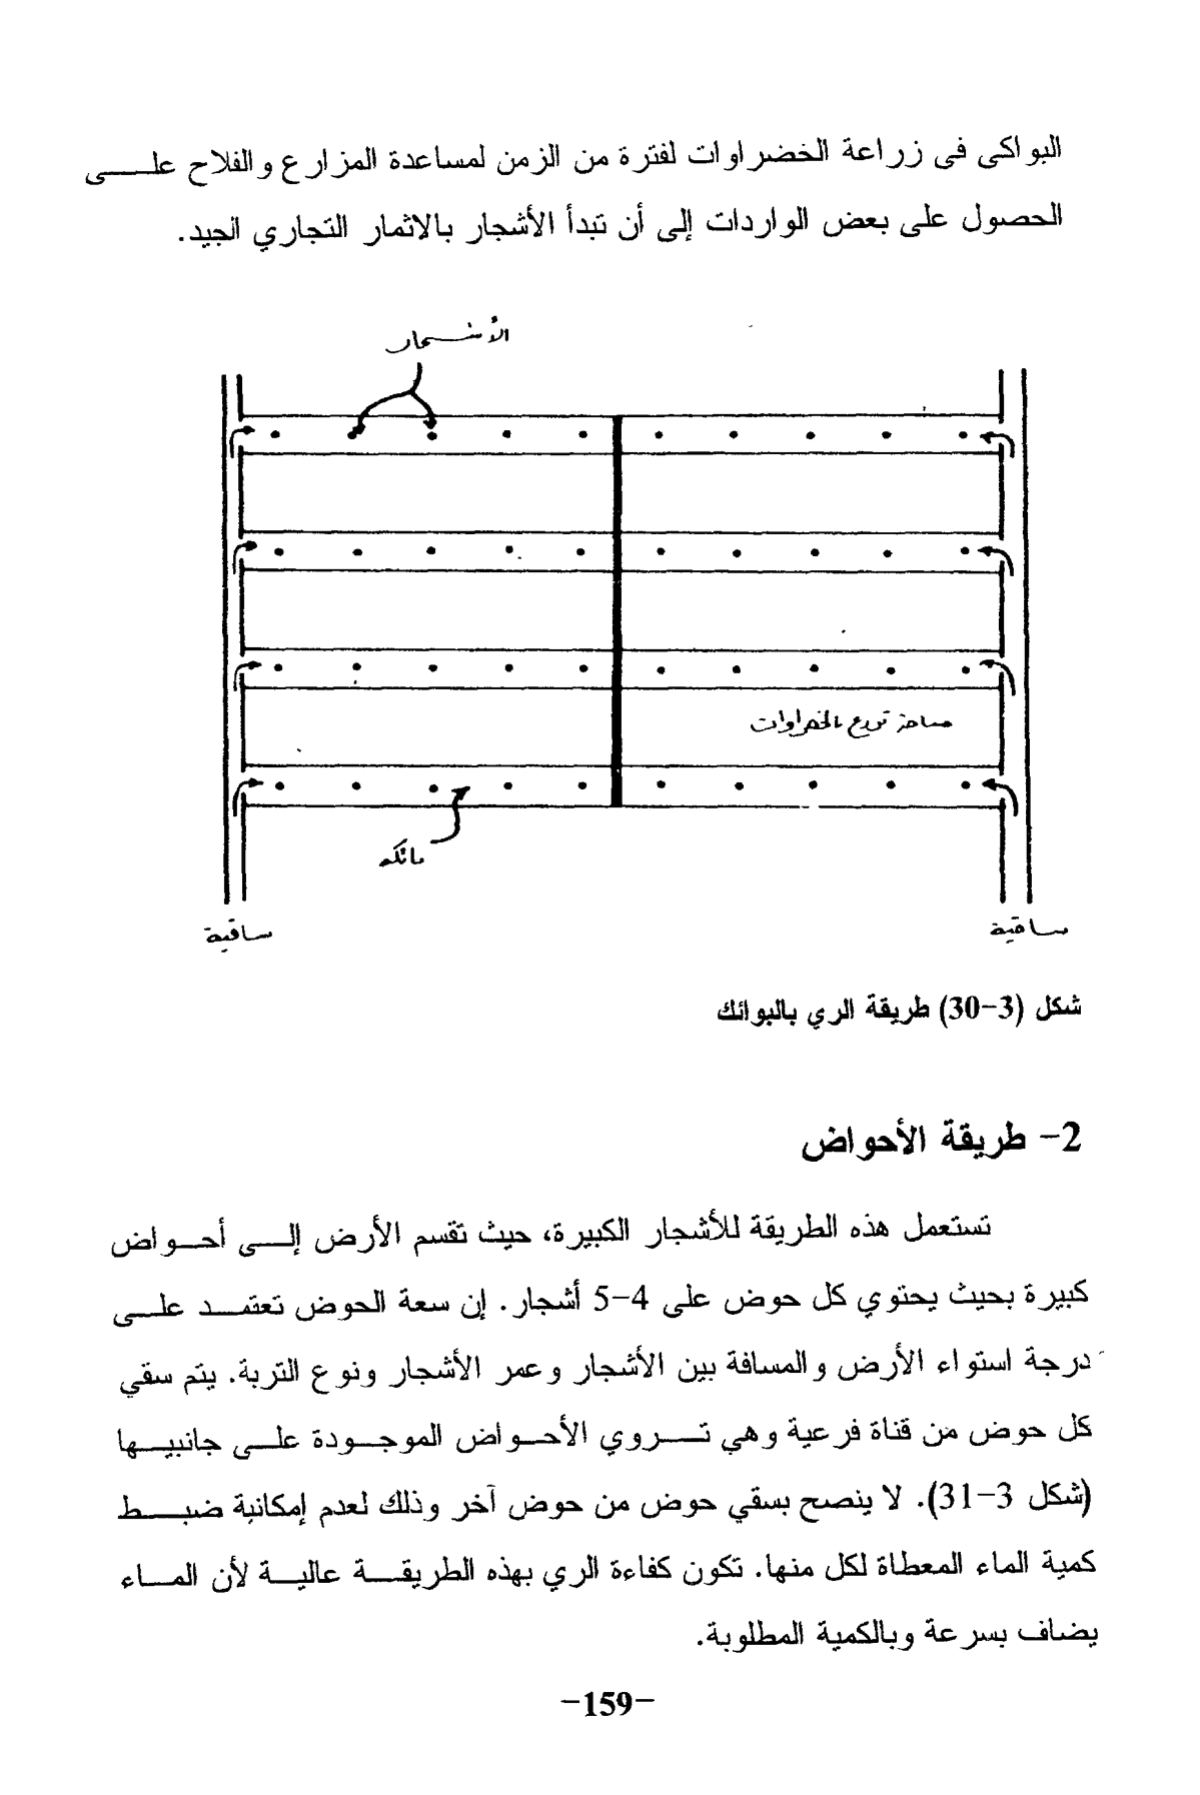 البواكى فى زراعة الخضراوات لفترة من الزمن لمساعدة المزارع والفلاح على
الحصول على بعض الواردات إلى أن تبدأ الأشجار بالاثمار التجاري الجيد.
الأشجار
مساحة تزرع بالخضراوات
باتكه
ساقية
ساقية
شكل (3-30) طريقة الري بالبوائك
2- طريقة الأحواض
تستعمل هذه الطريقة للأشجار الكبيرة، حيث تقسم الأرض إلى أحواض
كبيرة بحيث يحتوي كل حوض على 4-5 أشجار. إن سعة الحوض تعتمد على
درجة استواء الأرض والمسافة بين الأشجار وعمر الأشجار ونوع التربة. يتم سقي
كل حوض من قناة فرعية وهي تروي الأحواض الموجودة على جانبيها
(شكل 3-31). لا ينصح بسقي حوض من حوض آخر وذلك لعدم إمكانية ضبط
كمية الماء المعطاة لكل منها. تكون كفاءة الري بهذه الطريقة عالية لأن الماء
يضاف بسرعة وبالكمية المطلوبة.
-159-